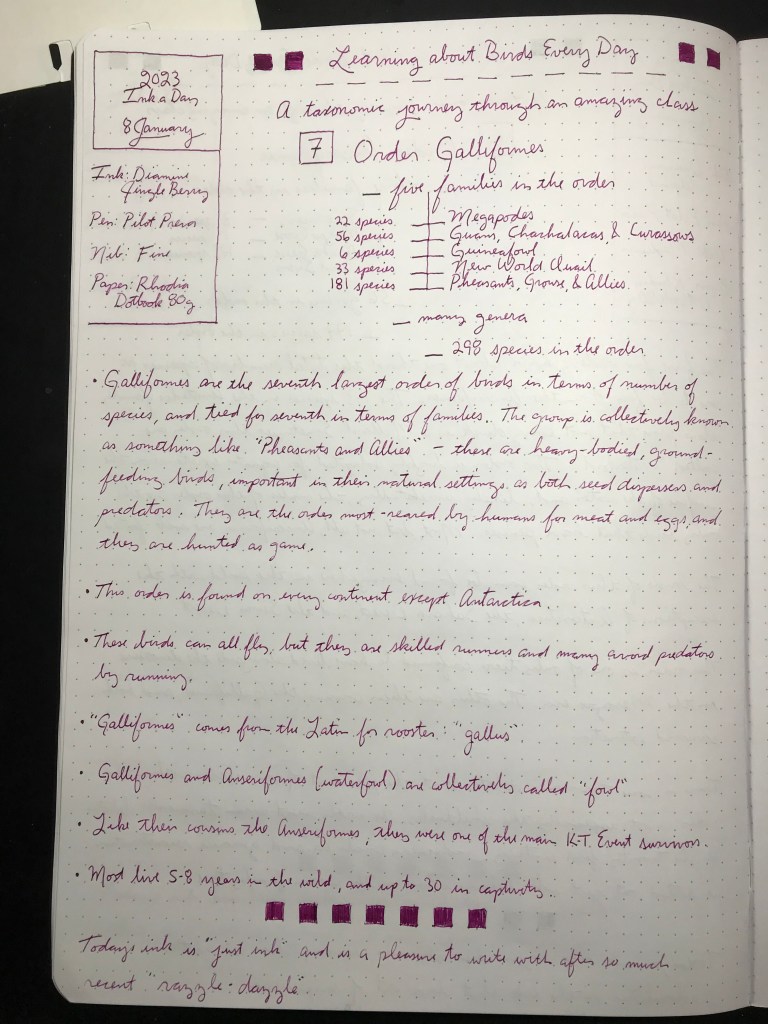 Learning about Birds Every Day
2023
Ink a Day
8 January
A taxonomic journey through an amazing class
7 Order Galliformes
Ink: Diamine
Jingle Berry
Pen: Pilot Prera
Nib: Fine
Paper: Rhodia
Dotbook 80g
— five families in the order
22 species — Megapodes
56 species — Guans, Chachalacas, & Curassows
6 species — Guineafowl
33 species — New World Quail
181 species — Pheasants, Grouse, & Allies
— many genera
— 298 species in the order
• Galliformes are the seventh largest order of birds in terms of number of
species, and tied for seventh in terms of families. The group is collectively known
as something like "Pheasants and Allies" – these are heavy-bodied, ground-
feeding birds, important in their natural settings as both seed dispersers and
predators. They are the order most-reared by humans for meat and eggs, and
they are hunted as game.
• This order is found on every continent except Antarctica.
• These birds can all fly, but they are skilled runners and many avoid predators
by running.
• "Galliformes" comes from the Latin for rooster: "gallus".
• Galliformes and Anseriformes (waterfowl) are collectively called "fowl"
• Like their cousins the Anseriformes, they were one of the main K-T Event survivors.
• Most live 5-8 years in the wild, and up to 30 in captivity.
Todays ink is "just ink" and is a pleasure to write with after so much
recent "razzle-dazzle".